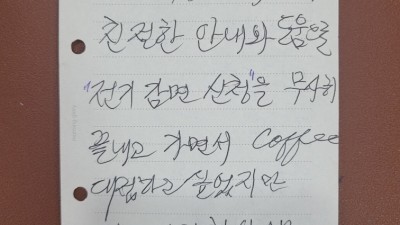 친절한 안내와 도움으로
"전기 감면 신청"을 무사히
끝내고 가면서 Coffee
대접하고 싶었지만